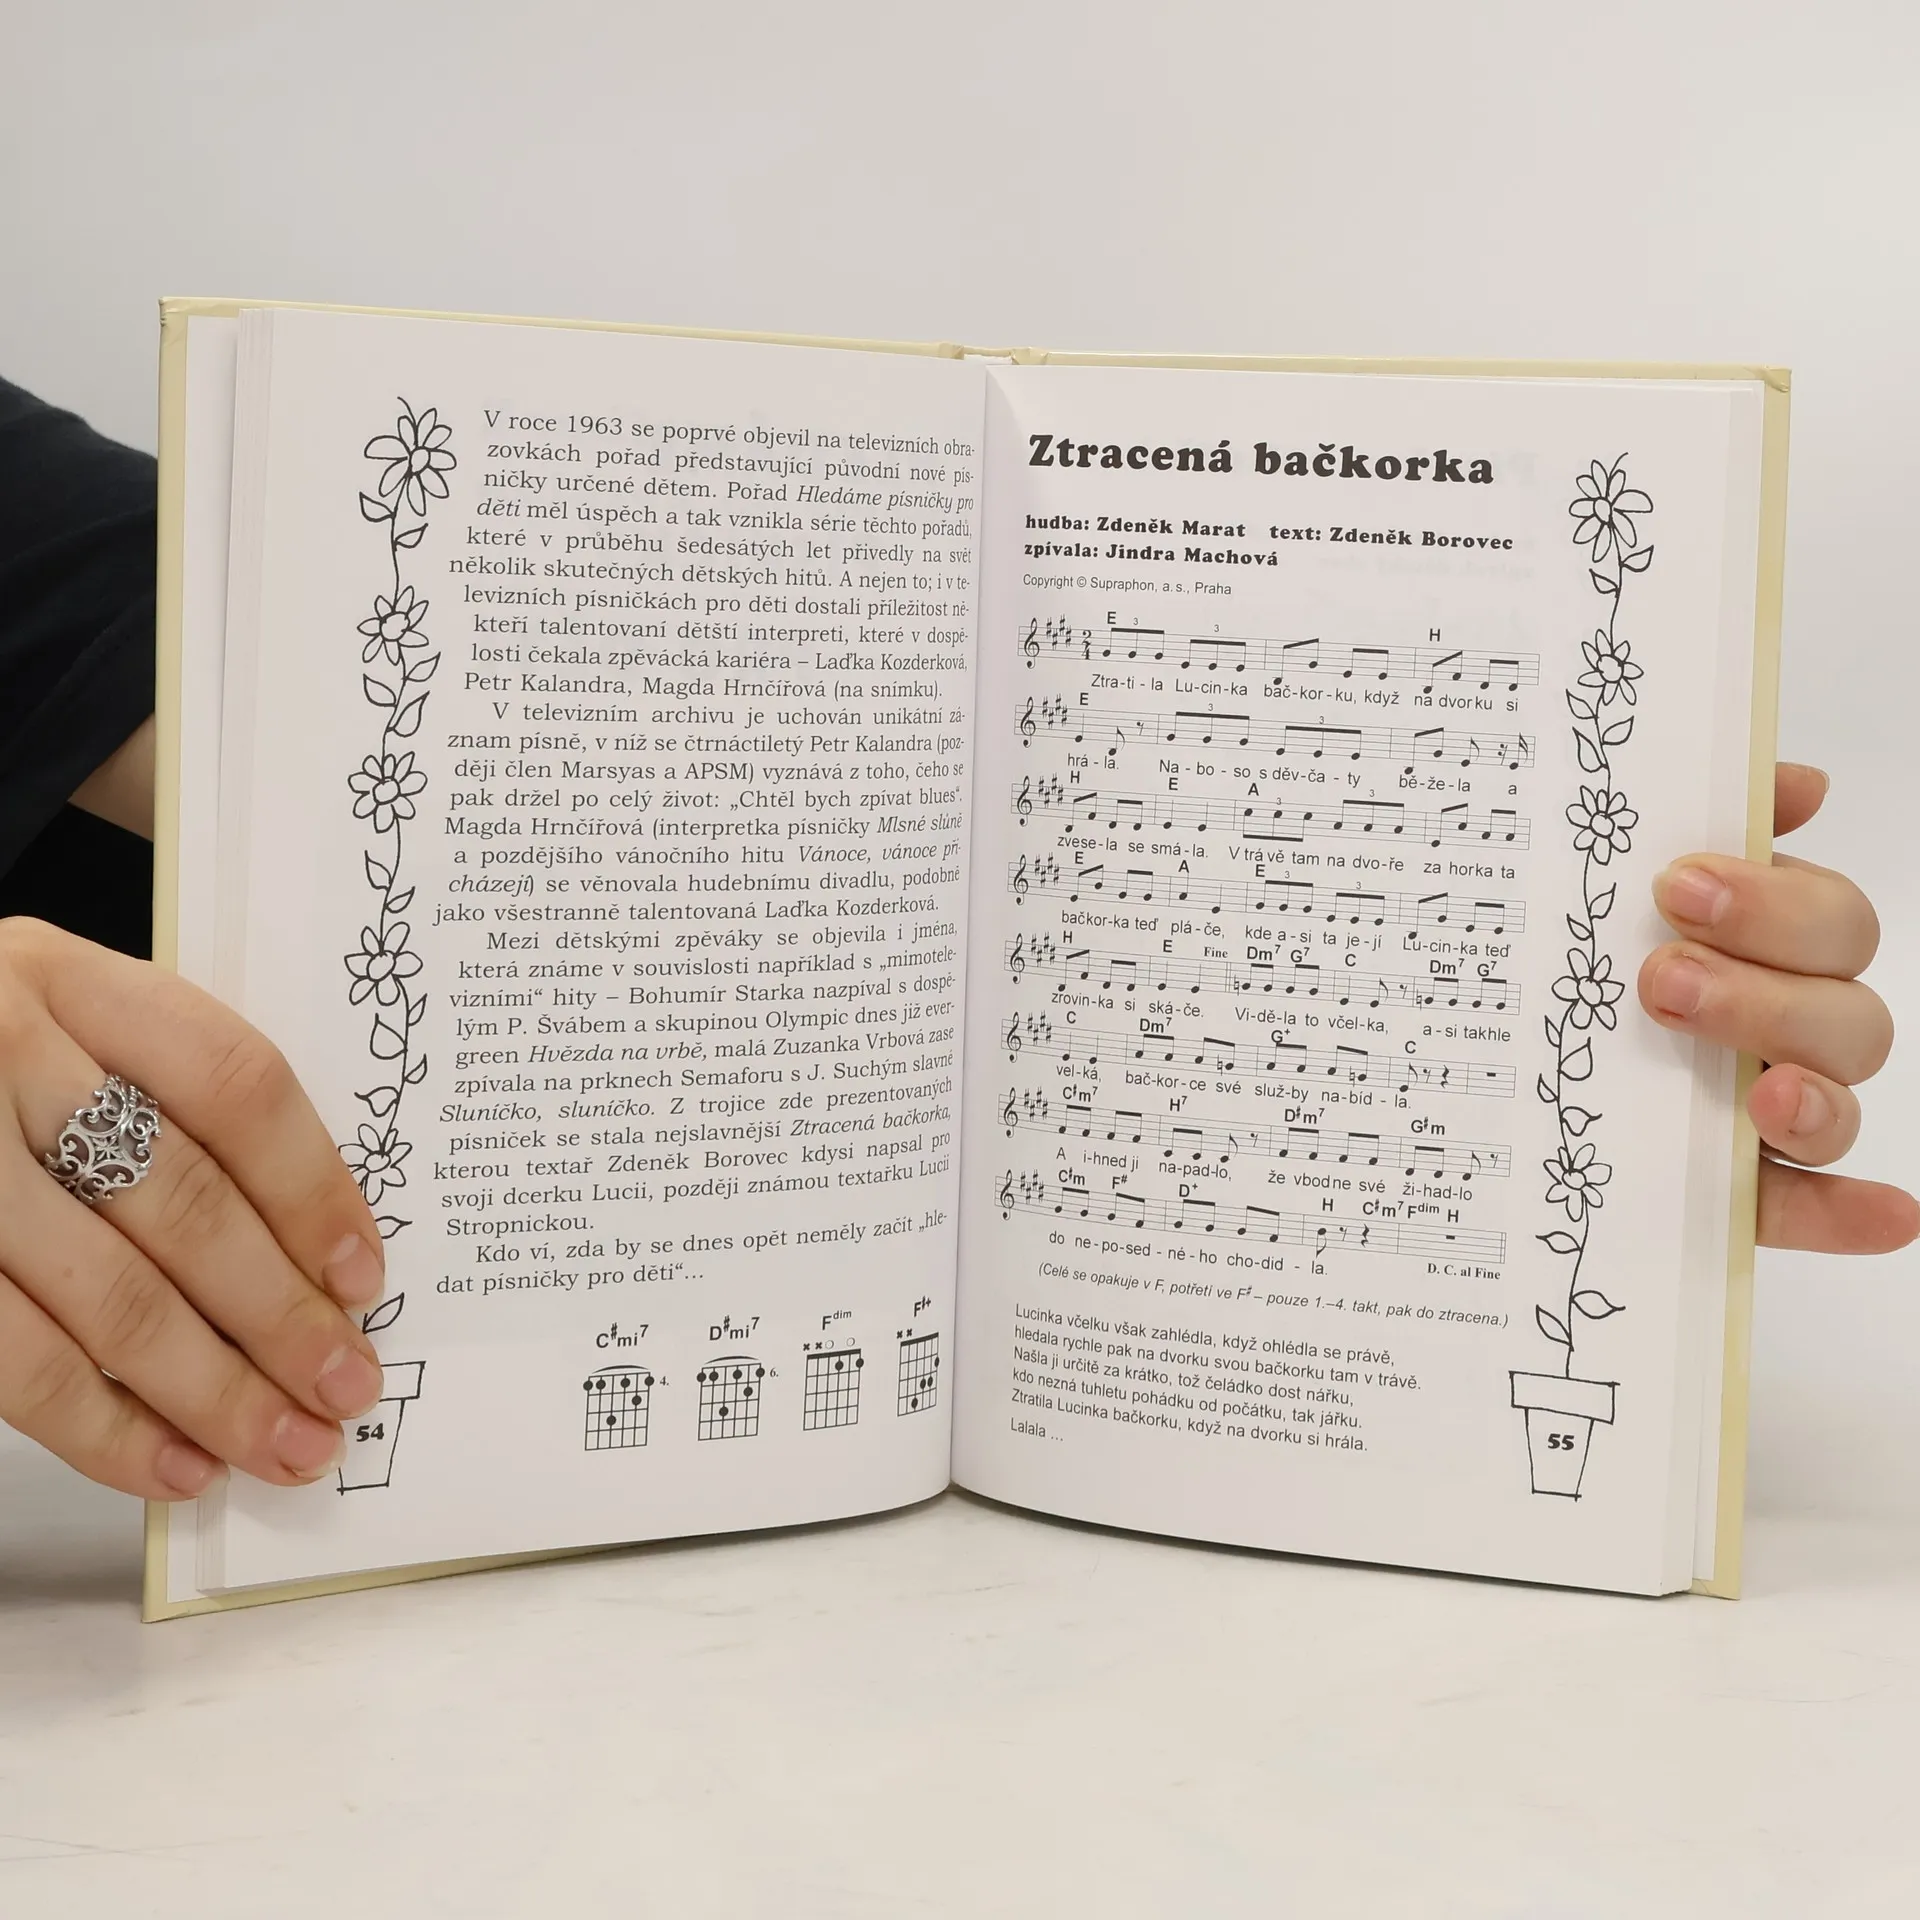 V roce 1963 se poprvé objevil na televizních obra-
zovkách pořad představující původní nové pís-
ničky určené dětem. Pořad Hledáme písničky pro
děti měl úspěch a tak vznikla série těchto pořadů,
které v průběhu šedesátých let přivedly na svět
několik skutečných dětských hitů. A nejen to; i v te-
levizních písničkách pro děti dostali příležitost ně-
kteří talentovaní dětští interpreti, které v dospě-
losti čekala zpěvácká kariéra – Laďka Kozderková,
Petr Kalandra, Magda Hrnčířová (na snímku).
V televizním archivu je uchován unikátní zá-
znam písně, v níž se čtrnáctiletý Petr Kalandra (poz-
ději člen Marsyas a APSM) vyznává z toho, čeho se
pak držel po celý život: „Chtěl bych zpívat blues“.
Magda Hrnčířová (interpretka písničky Mlsné slůně
a pozdějšího vánočního hitu Vánoce, vánoce při-
cházejí) se věnovala hudebnímu divadlu, podobně
jako všestranně talentovaná Laďka Kozderková.
Mezi dětskými zpěváky se objevila i jména,
která známe v souvislosti například s „mimotele-
vizními“ hity – Bohumír Starka nazpíval s dospě-
lým P. Švábem a skupinou Olympic dnes již ever-
green Hvězda na vrbě, malá Zuzanka Vrbová zase
zpívala na prknech Semaforu s J. Suchým slavné
Sluníčko, sluníčko. Z trojice zde prezentovaných
písniček se stala nejslavnější Ztracená bačkorka,
kterou textař Zdeněk Borovec kdysi napsal pro
svoji dcerku Lucii, později známou textařku Lucii
Stropnickou.
Kdo ví, zda by se dnes opět neměly začít „hle-
dat písničky pro děti“...
C#mi7 D#mi7 Fdim
4. 6.
54
Ztracená bačkorka
hudba: Zdeněk Marat text: Zdeněk Borovec
zpívala: Jindra Machová
Copyright © Supraphon, a. s., Praha
E 3 3 H
2 4
Ztra-ti - la Lu-cin-ka bač-kor-ku, když na dvorku si
E 3 3
hrá - la. Na - bo - so s děv-ča - ty bě-že-la a
H E A 3 3
zvese-la se smá-la. V trávě tam na dvo-ře za horka ta
E A E 3 3
bačkor-ka teď plá-če, kde a-si ta je-jí Lu-cin-ka teď
H E Fine Dm7 G7 C Dm7 G7
zrovin-ka si ská-če. Vi-dě-la to včel-ka, a-si takhle
C Dm7 G+ C
vel-ká, bač-kor-ce své služ-by na-bíd - la.
C#m7 H7 D#m7 G#m
A i-hned ji na-pad-lo, že vbodne své ži-had-lo
C#m F# D+ H C#m7 Fdim H
do ne-po-sed - né-ho cho-did - la.
D. C. al Fine
(Celé se opakuje v F, potřetí ve F# – pouze 1.–4. takt, pak do ztracena.)
Lucinka včelku však zahlédla, když ohlédla se právě,
hledala rychle pak na dvorku svou bačkorku tam v trávě.
Našla ji určitě za krátko, tož čeládko dost nářku,
kdo nezná tuhletu pohádku od počátku, tak jářku.
Ztratila Lucinka bačkorku, když na dvorku si hrála.
Lalala ...
55